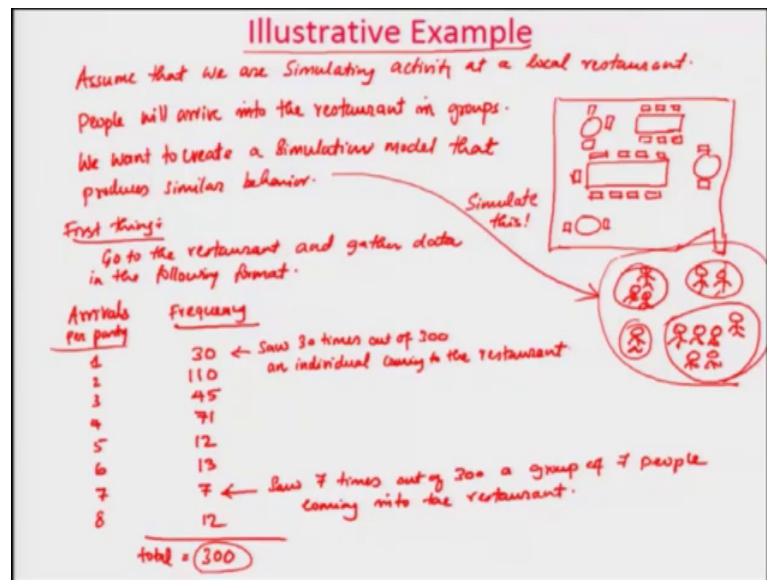 Illustrative Example
Assume that we are simulating activity at a local restaurant.
People will arrive into the restaurant in groups.
We want to create a simulation model that
produces similar behavior.
Simulate
this!
First thing:
Go to the restaurant and gather data
in the following format.
Arrivals
per party
Frequency
1 30 ← Saw 30 times out of 300
an individual coming to the restaurant
2 110
3 45
4 71
5 12
6 13
7 7 ← Saw 7 times out of 300 a group of 7 people
coming into the restaurant.
8 12
total = 300